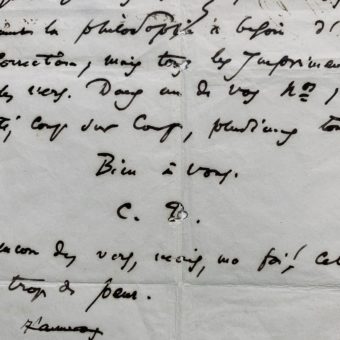 la philosophie a besoin d'
correction, mais tous les Imprimeu
des vers. Dans un de vos nos,
coup sur coup, plusieurs
Bien à vous.
C. B.
des vers, mais, ma foi! cel
trop de peur.